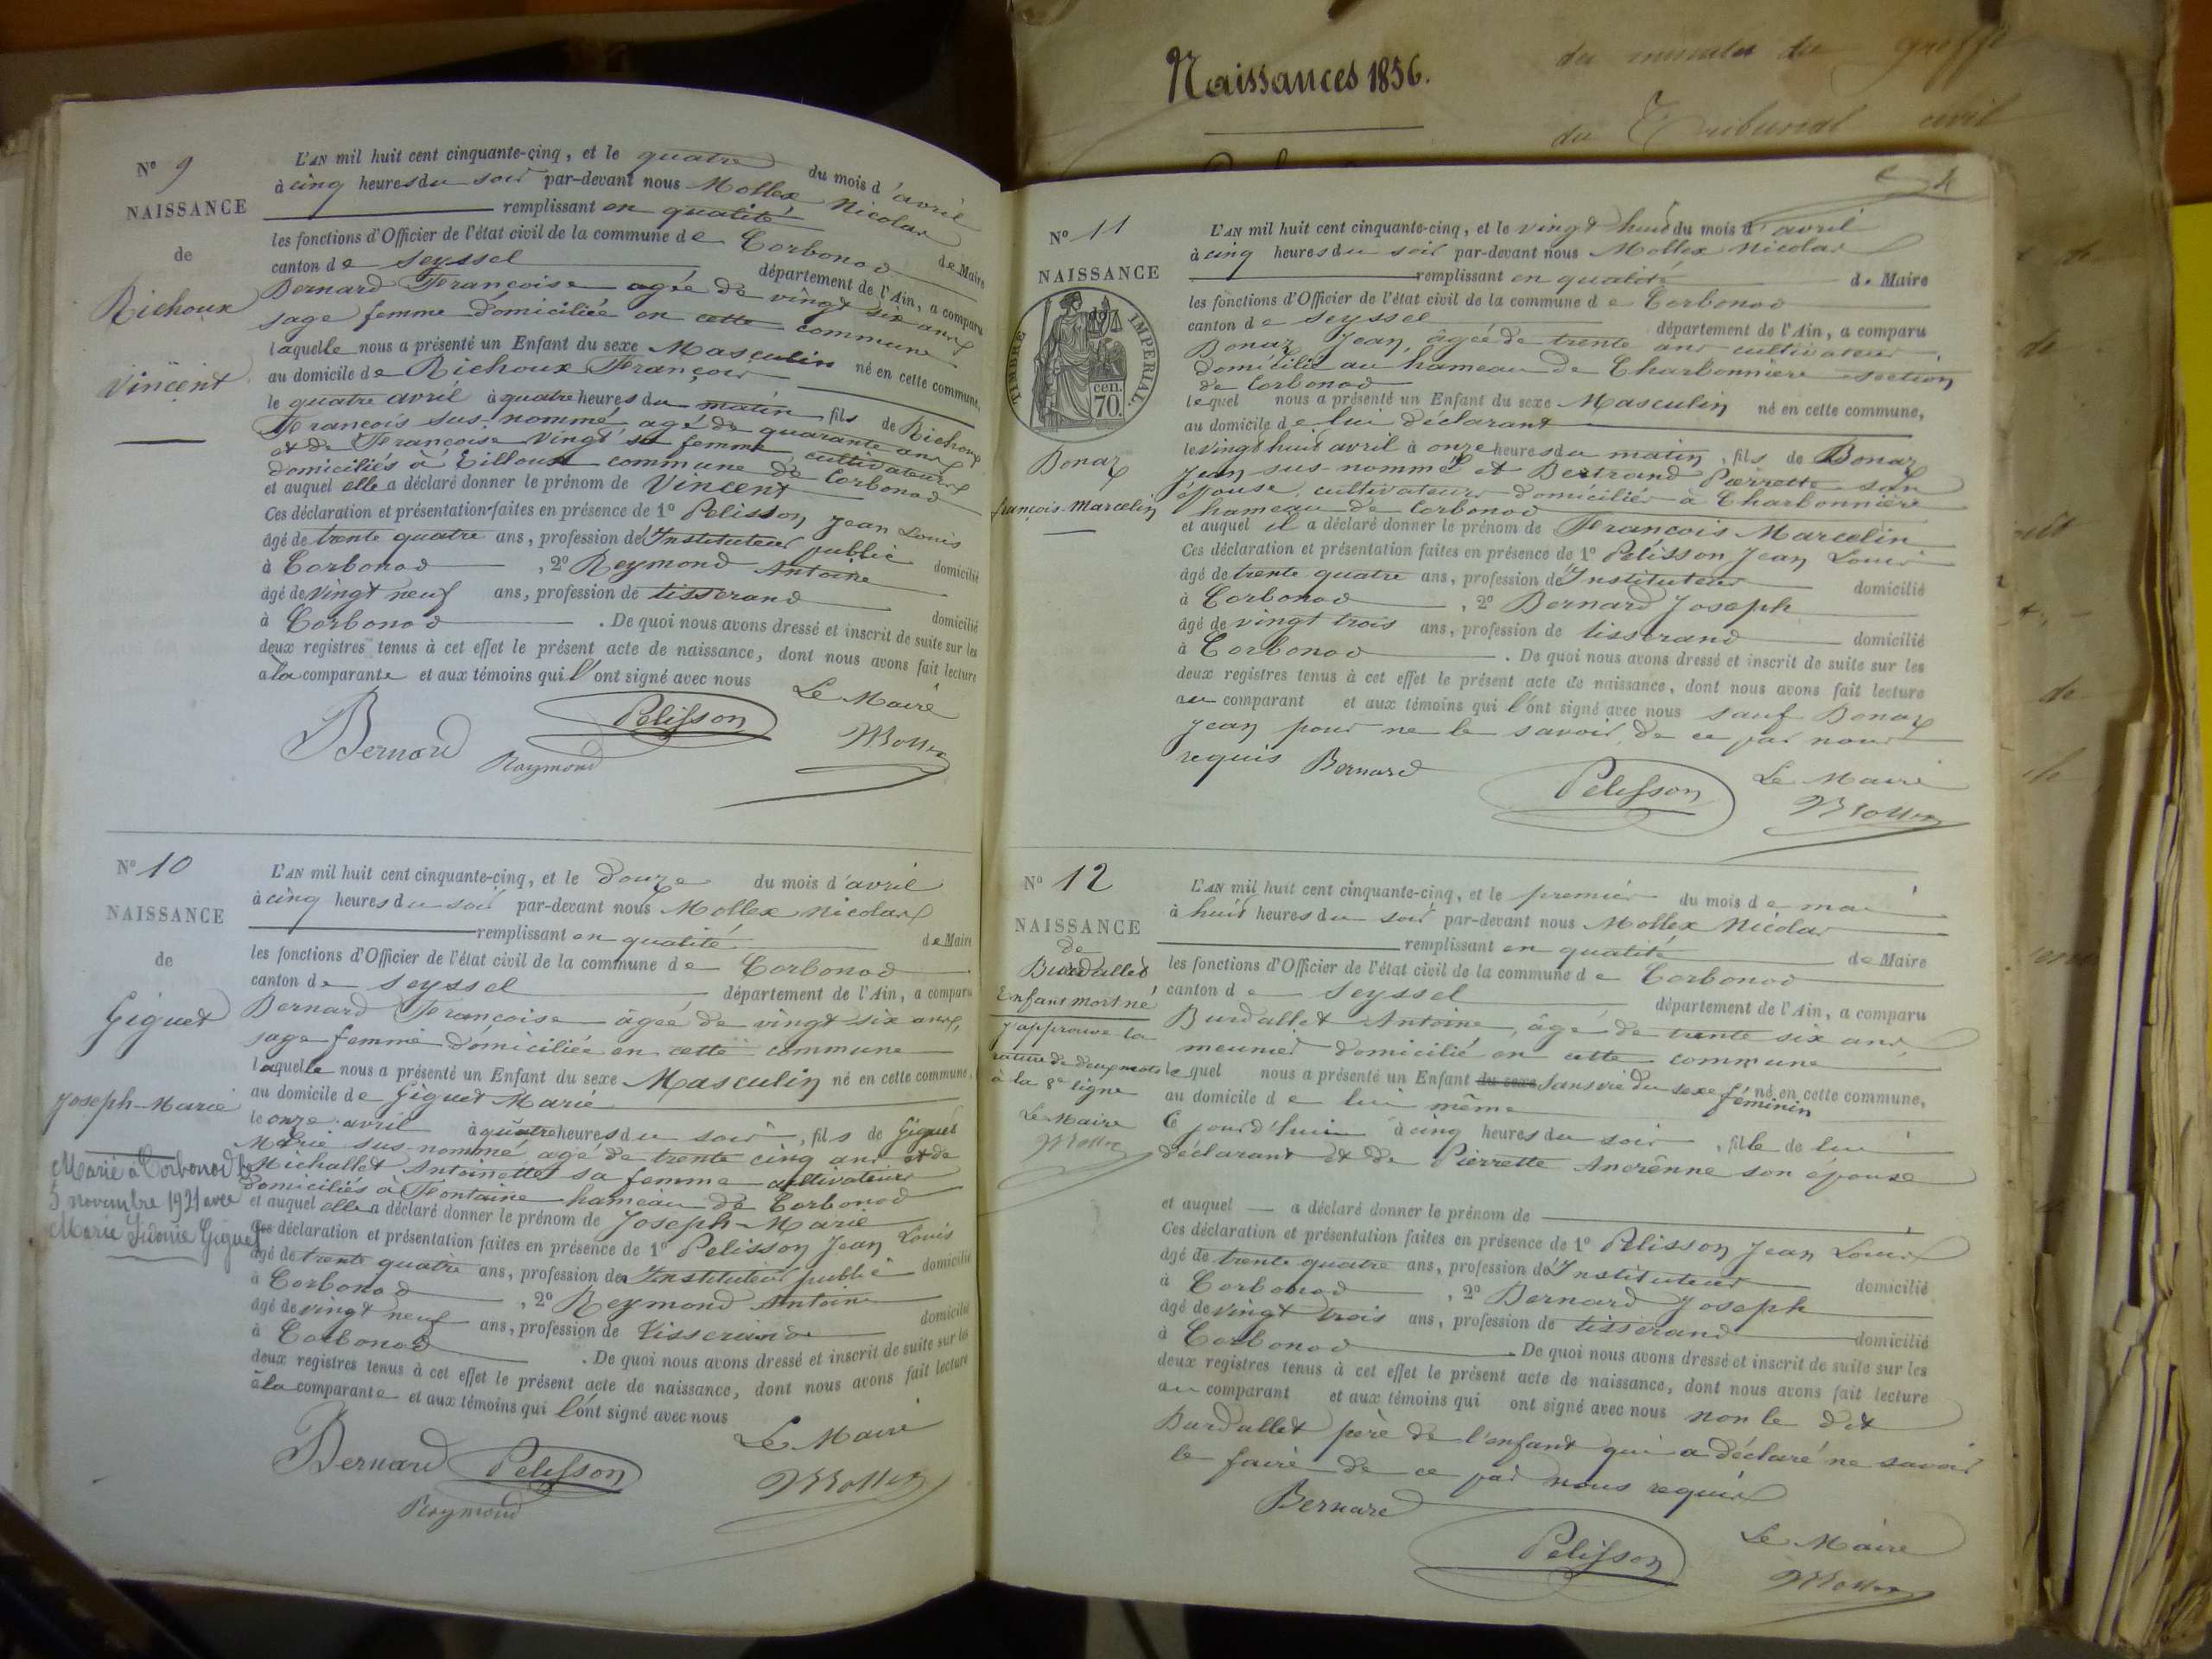 Naissances 1856.
du greffe
du Tribunal civil
N° 9
NAISSANCE
de
Richoux
Vincent
L'AN mil huit cent cinquante-cinq, et le quatre du mois d'avril
à cinq heures du soir par-devant nous Mollex Nicolas
remplissant en qualité de Maire
les fonctions d'Officier de l'état civil de la commune de Corbonod
canton de Seyssel département de l'Ain, a comparu
Bernard Françoise agée de vingt six ans
sage femme domiciliée en cette commune
laquelle nous a présenté un Enfant du sexe Masculin né en cette commune,
au domicile de Richoux François
le quatre avril à quatre heures du matin fils de Richoux
François sus-nommé, agé de quarante ans
et de Françoise Vingt sa femme, cultivateurs
domiciliés à Eilloux commune de Corbonod
et auquel elle a déclaré donner le prénom de Vincent
Ces déclaration et présentation faites en présence de 1° Pelisson Jean Louis
âgé de trente quatre ans, profession de Instituteur public domicilié
à Corbonod , 2° Reymond Antoine
âgé de vingt neuf ans, profession de tisserand domicilié
à Corbonod . De quoi nous avons dressé et inscrit de suite sur les
deux registres tenus à cet effet le présent acte de naissance, dont nous avons fait lecture
à la comparante et aux témoins qui l'ont signé avec nous
Le Maire
Bernard Pelisson Mollex
Raymond
N° 10
NAISSANCE
de
Giguet
Joseph-Marie
Marié à Corbonod le
5 novembre 1921 avec
Marie Sidonie Giguet
L'AN mil huit cent cinquante-cinq, et le douze du mois d'avril
à cinq heures du soir par-devant nous Mollex Nicolas
remplissant en qualité de Maire
les fonctions d'Officier de l'état civil de la commune de Corbonod
canton de Seyssel département de l'Ain, a comparu
Bernard Françoise âgée de vingt six ans,
sage femme domiciliée en cette commune
laquelle nous a présenté un Enfant du sexe Masculin né en cette commune,
au domicile de Giguet Marie
le onze avril à quatre heures du soir, fils de Giguet
Marie sus-nommé, agé de trente cinq ans et de
Michallet Antoinette sa femme cultivateurs
domiciliés à Fontaine hameau de Corbonod
et auquel elle a déclaré donner le prénom de Joseph-Marie
Ces déclaration et présentation faites en présence de 1° Pelisson Jean Louis
âgé de trente quatre ans, profession de Instituteur public domicilié
à Corbonod , 2° Reymond Antoine
âgé de vingt neuf ans, profession de Tisserand domicilié
à Corbonod . De quoi nous avons dressé et inscrit de suite sur les
deux registres tenus à cet effet le présent acte de naissance, dont nous avons fait lecture
à la comparante et aux témoins qui l'ont signé avec nous
Le Maire
Bernard Pelisson Mollex
Raymond
4
N° 11
NAISSANCE
de
TIMBRE IMPERIAL.
cen.
70.
Bonaz
françois-Marcelin
L'AN mil huit cent cinquante-cinq, et le vingt huit du mois d'avril
à cinq heures du soir par-devant nous Mollex Nicolas
remplissant en qualité de Maire
les fonctions d'Officier de l'état civil de la commune de Corbonod
canton de Seyssel département de l'Ain, a comparu
Bonaz Jean, âgée de trente ans cultivateur,
domicilié au hameau de Charbonniere section
de Corbonod
lequel nous a présenté un Enfant du sexe Masculin né en cette commune,
au domicile de lui déclarant
le vingt huit avril à onze heures du matin, fils de Bonaz
Jean sus-nommé et Bertrand Pierrette son
épouse, cultivateurs domiciliés à Charbonnière
hameau de Corbonod
et auquel il a déclaré donner le prénom de François Marcelin
Ces déclaration et présentation faites en présence de 1° Pelisson Jean Louis
âgé de trente quatre ans, profession d'Instituteur domicilié
à Corbonod , 2° Bernard Joseph
âgé de vingt trois ans, profession de tisserand domicilié
à Corbonod . De quoi nous avons dressé et inscrit de suite sur les
deux registres tenus à cet effet le présent acte de naissance, dont nous avons fait lecture
au comparant et aux témoins qui l'ont signé avec nous sauf Bonaz
Jean pour ne le savoir de ce par nous
requis Bernard
Pelisson Le Maire
Mollex
N° 12
NAISSANCE
de
Burdallet
Enfant mort né
J'approuve la
rature de deux mots
à la 8e ligne
Le Maire
Mollex
L'AN mil huit cent cinquante-cinq, et le premier du mois de mai
à huit heures du soir par-devant nous Mollex Nicolas
remplissant en qualité de Maire
les fonctions d'Officier de l'état civil de la commune de Corbonod
canton de Seyssel département de l'Ain, a comparu
Burdallet Antoine, âgé de trente six ans,
meunier domicilié en cette commune
lequel nous a présenté un Enfant du sexe sans vie du sexe féminin né en cette commune,
au domicile de lui même
Ce jourd'hui à cinq heures du soir, fille de lui
déclarant et de Pierrette Ancrênne son épouse
et auquel a déclaré donner le prénom de
Ces déclaration et présentation faites en présence de 1° Pelisson Jean Louis
âgé de trente quatre ans, profession d'Instituteur domicilié
à Corbonod , 2° Bernard Joseph
âgé de vingt trois ans, profession de tisserand domicilié
à Corbonod . De quoi nous avons dressé et inscrit de suite sur les
deux registres tenus à cet effet le présent acte de naissance, dont nous avons fait lecture
au comparant et aux témoins qui ont signé avec nous non le dit
Burdallet père de l'enfant qui a déclaré ne savoir
le faire de ce par nous requis
Bernard
Pelisson Le Maire
Mollex